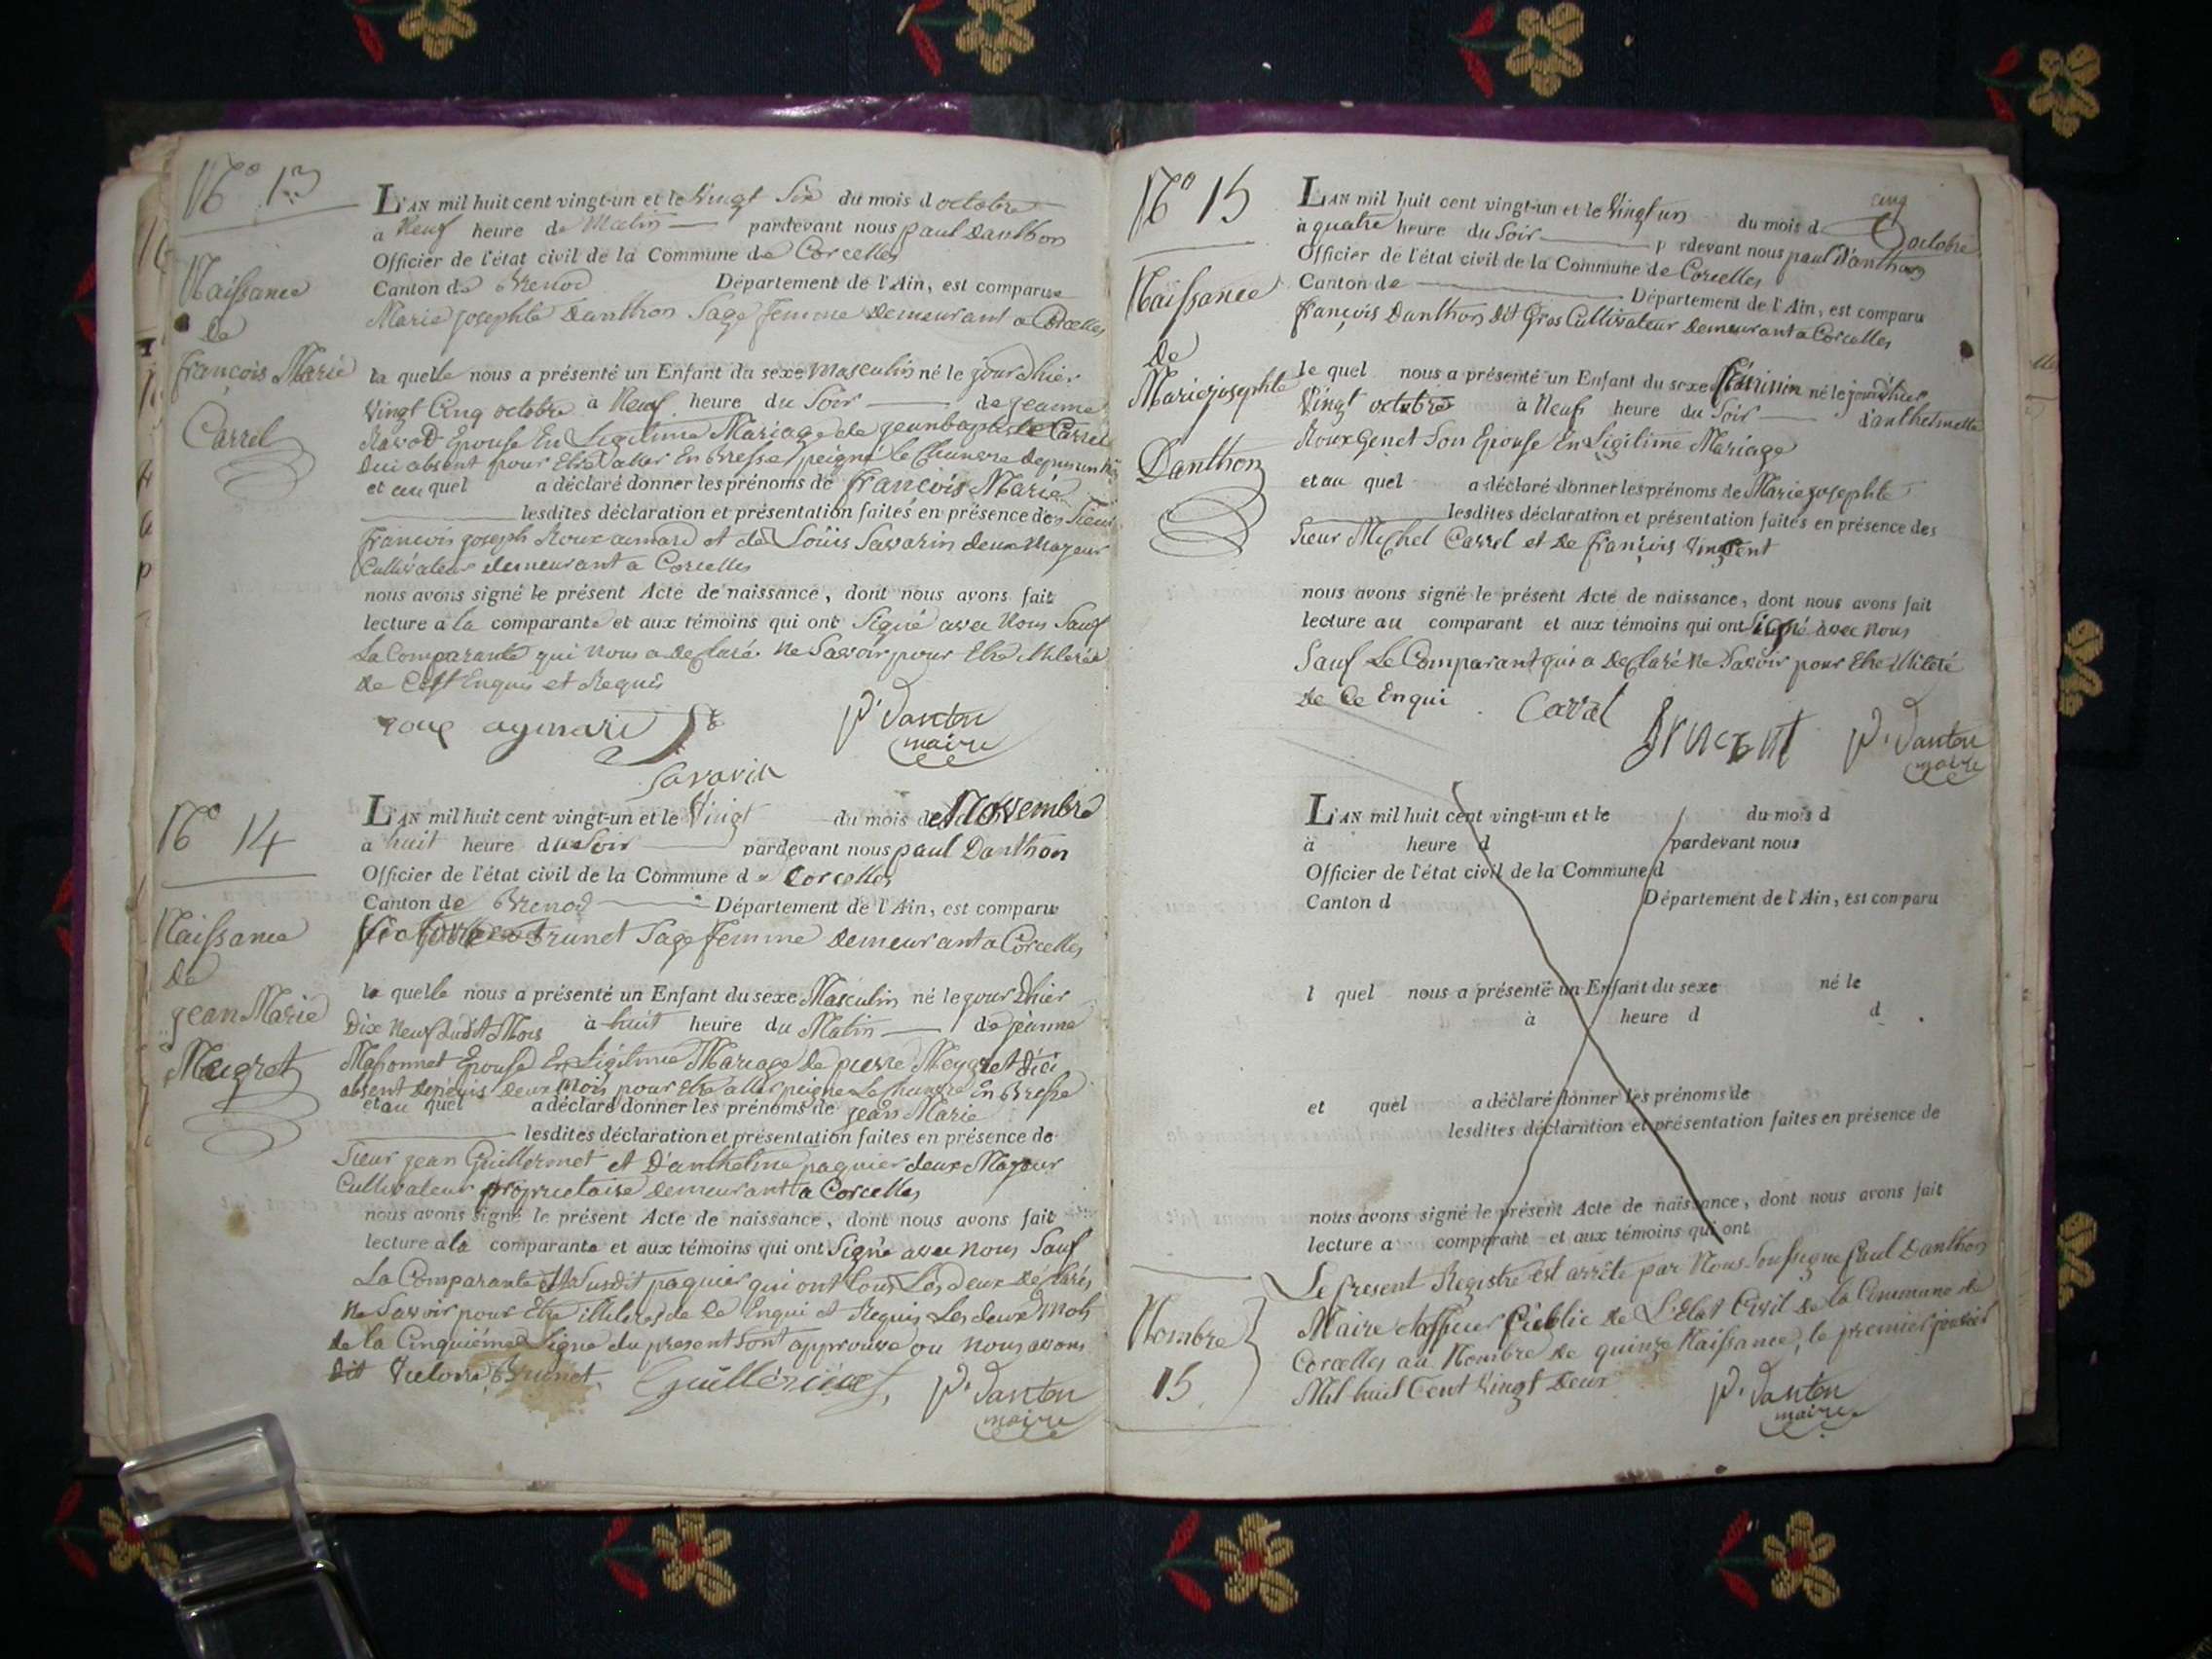 N.º 13
L'AN mil huit cent vingt-un et le Vingt Six du mois d octobre
a Neuf heure de Matin pardevant nous paul Danthon
Officier de l'état civil de la Commune de Corcelles
Canton de Brenod Département de l'Ain, est comparue
Marie josephte Danthon Sage femme demeurant a Corcelles
Naissance
de
françois Marie
Carrel
la quelle nous a présenté un Enfant du sexe masculin né le jour d'hier
Vingt Cinq octobre à Neuf heure du Soir de jeanne
Ravod Epouse En Ligitime Mariage de jeanbaptiste Carrel
absent pour Etre aller En Bresse peigné le Chanvre depuis un
et au quel a déclaré donner les prénoms de françois Marie
lesdites déclaration et présentation faites en présence des Sieur
françois joseph Roux aimard et de Louis Savarin deux Mayeur
Cultivateur demeurant a Corcelles
nous avons signé le présent Acte de naissance, dont nous avons fait
lecture a la comparante et aux témoins qui ont Signé avec Nous Sauf
La Comparante qui Nous a declaré Ne Savoir pour Etre illiterée
de Cest Enquis et Requis
roux aymard
P. Danton
maire
Savarin
N.º 14
L'AN mil huit cent vingt-un et le Vingt du mois de Novembre
a huit heure du Soir pardevant nous paul Danthon
Officier de l'état civil de la Commune de Corcelles
Canton de Brenod Département de l'Ain, est comparu
Victoire Brunet Sage femme demeurant a Corcelles
Naissance
de
jean Marie
Meigret
la quelle nous a présenté un Enfant du sexe Masculin né le jour d'hier
Dix Neuf dudit Mois à huit heure du Matin de jeanne
Massonnet Epouse En Ligitime Mariage de pierre Meygret dici
absent depuis deux Mois pour Etre aller peigne Le Chanvre En Bresse
et au quel a déclaré donner les prénoms de jean Marie
lesdites déclaration et présentation faites en présence de
Sieur jean Guillermet et D'anthelme paquier deux Mayeur
Cultivateur proprietaire demeurant a Corcelles
nous avons signé le présent Acte de naissance, dont nous avons fait
lecture a la comparante et aux témoins qui ont Signé avec Nous Sauf
La Comparante et le Susdit paquier qui ont tous Les deux declarés
Ne Savoir pour Etre illiterés de Ce Enqui et Requis Les deux Mots
de la Cinquiéme Ligne du present Sont approuve ou nous avons
dit Victoire Brunet.
Guillermet
P. Danton
maire
N.º 15
L'AN mil huit cent vingt-un et le Vingt un du mois d octobre
à quatre heure du Soir p rdevant nous paul D'anthon
Officier de l'état civil de la Commune de Corcelles
Canton de Département de l'Ain, est comparu
françois Danthon dit Gros Cultivateur demeurant a Corcelles
Naissance
de
Marie josephte
Danthon
le quel nous a présenté un Enfant du sexe féminin né le jour d'hier
Vingt octobre à Neuf heure du Soir d'anthelmette
Roux Genet Son Epouse En Ligitime Mariage
et au quel a déclaré donner les prénoms de Marie josephte
lesdites déclaration et présentation faites en présence des
Sieur Michel Carrel et de françois Vincent
nous avons signé le présent Acte de naissance, dont nous avons fait
lecture au comparant et aux témoins qui ont Signé avec Nous
Sauf Le Comparant qui a declaré Ne Savoir pour Etre illiteré
de Ce Enqui
Carrel
Vincent
P. Danton
maire
L'AN mil huit cent vingt-un et le du mois d
à heure d pardevant nous
Officier de l'état civil de la Commune d
Canton d Département de l'Ain, est comparu
l quel nous a présenté un Enfant du sexe né le
à heure d d
et quel a déclaré donner les prénoms de
lesdites déclaration et présentation faites en présence de
nous avons signé le présent Acte de naissance, dont nous avons fait
lecture a comparant et aux témoins qui ont
Le present Registre est arrêté par Nous Soussigné Paul Danthon
Maire et officier Public de L'Etat Civil de la Commune de
Corcelles au Nombre de quinze Naissance, le premier janvier
Mil huit Cent Vingt Deux
Nombre
15
P. Danton
maire